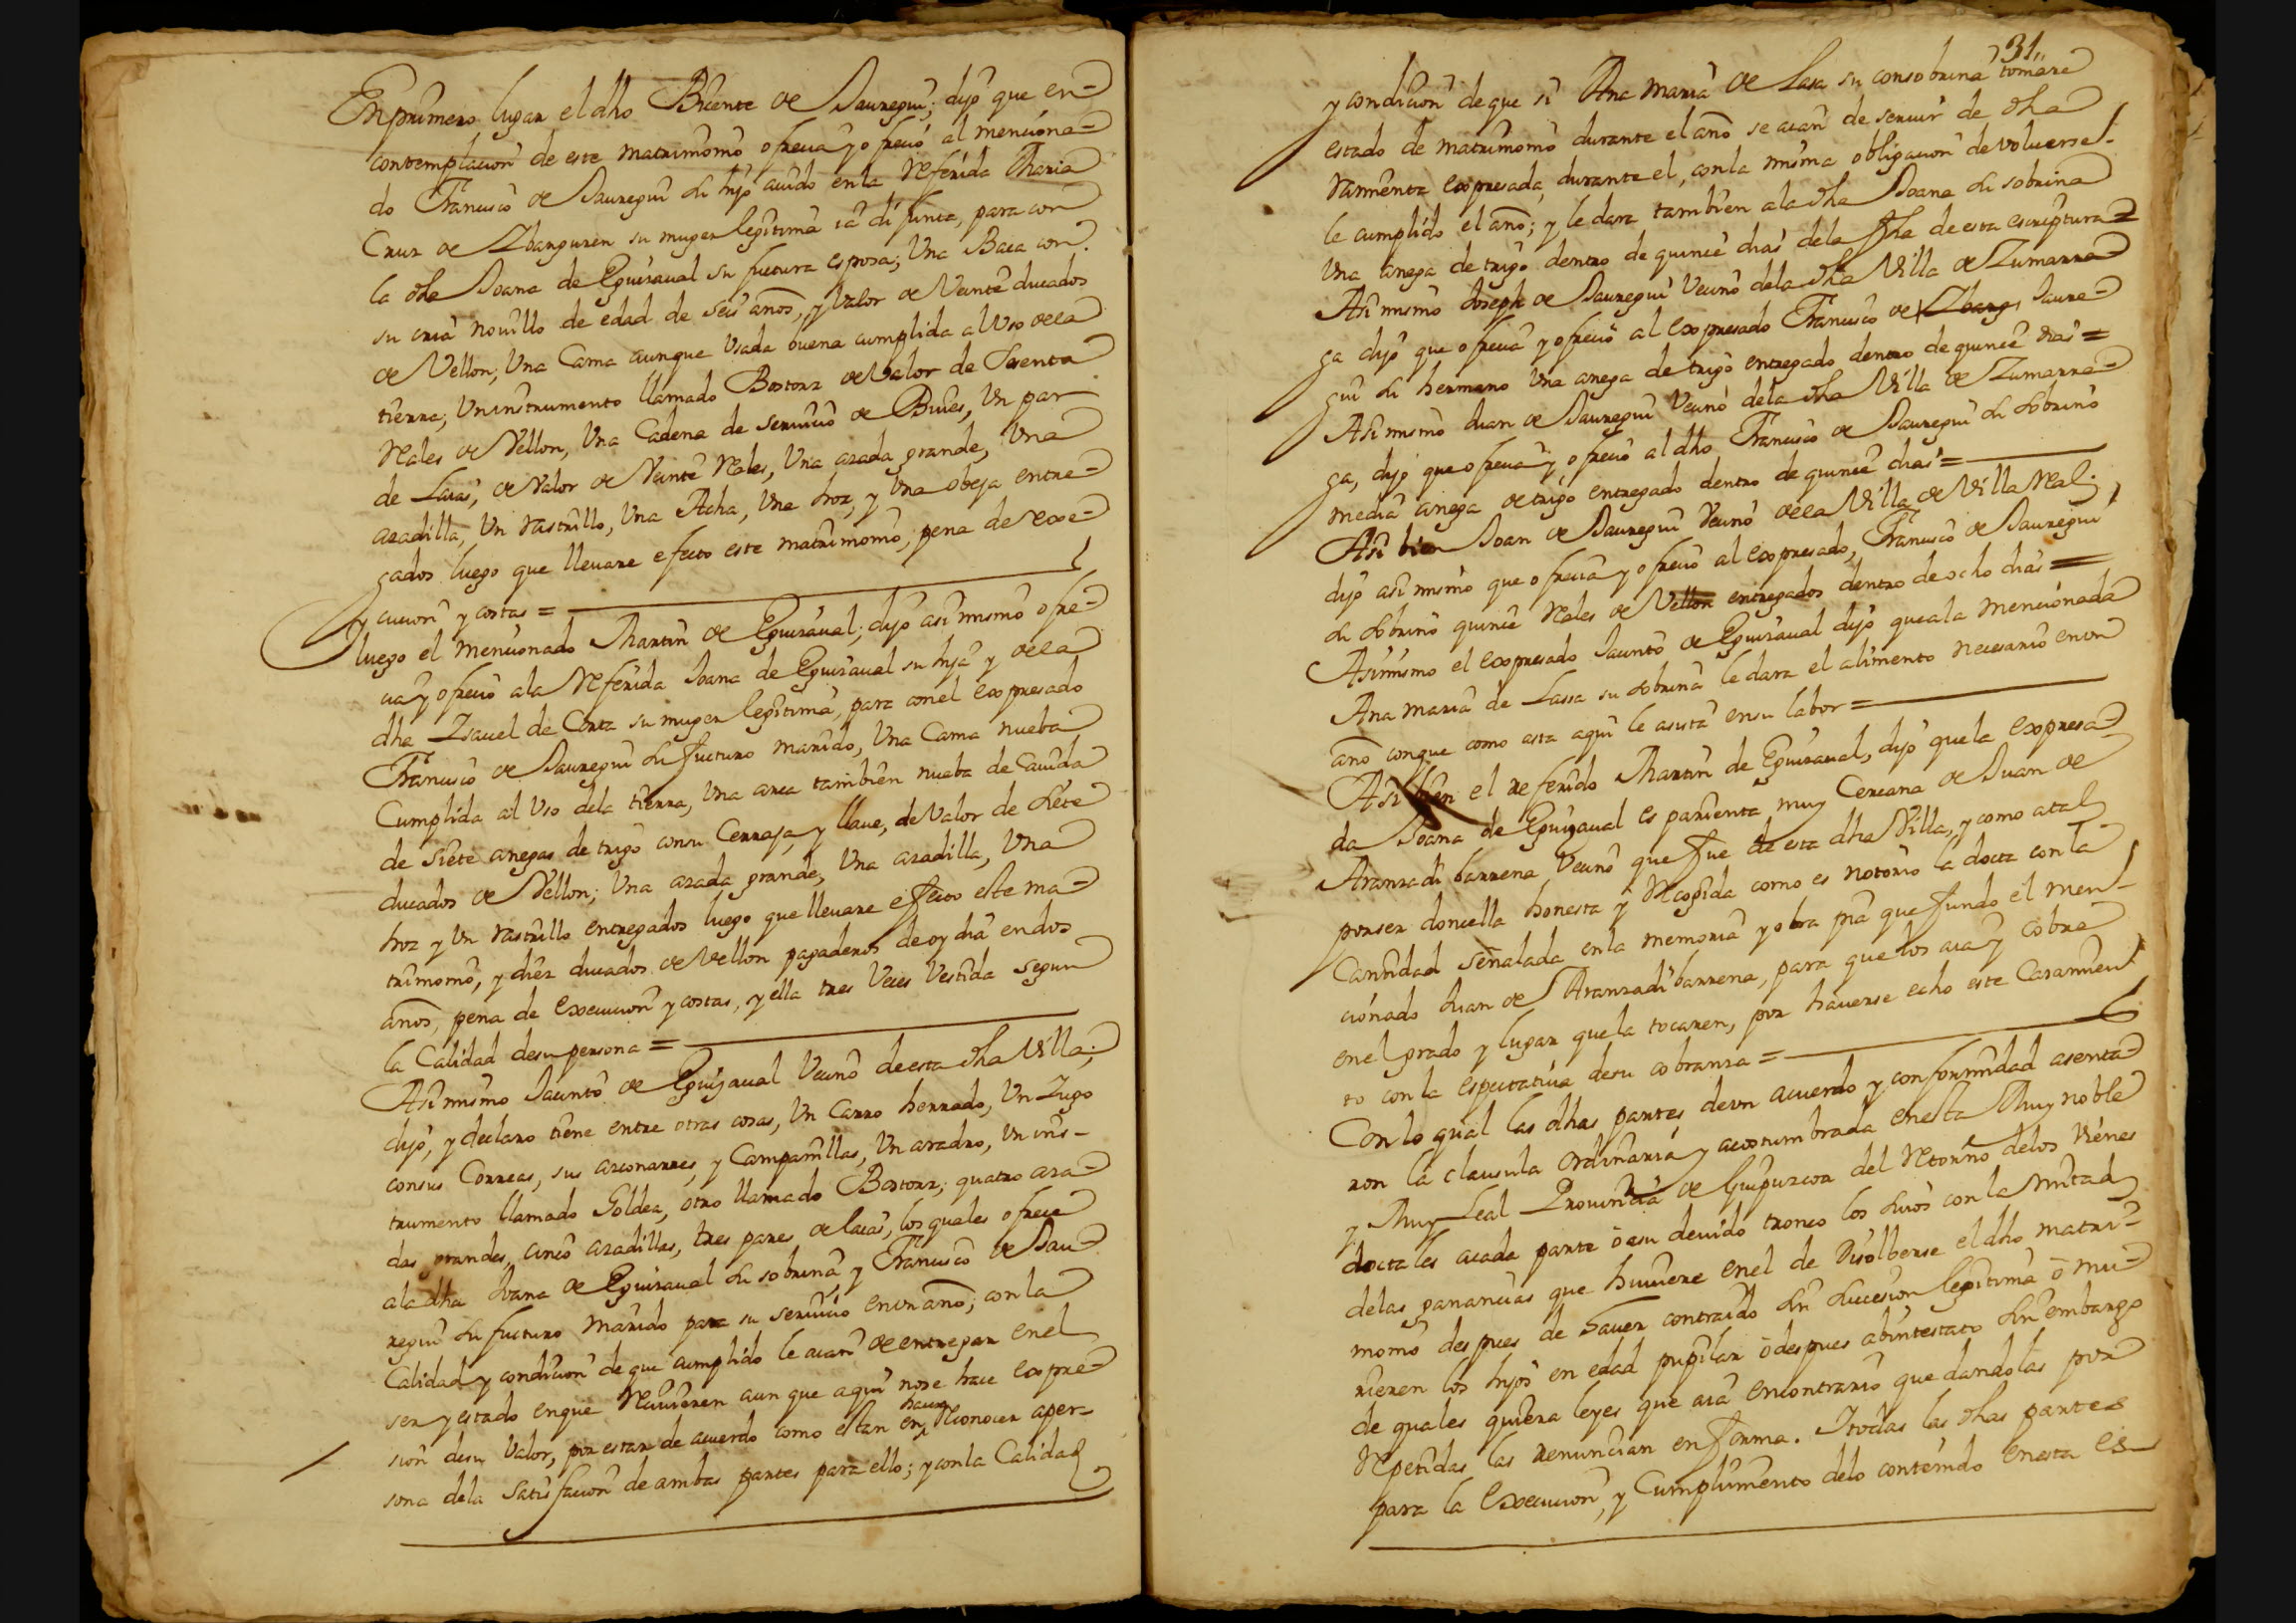 En primero lugar el dho Bicente de Jauregui; dijo que en
contemplacion de este matrimonio ofrecia y ofrecio al menciona=
do Francisco de Jauregui su hijo auido en la Referida Maria
Cruz de Ybarguren su muger legitima ia difunta, para con
la dha Joana de Eguizaual su futura esposa; Una Baca con
su cria nouillo de edad de seis años, y Valor de Veinte ducados
de Vellon; Una Cama aunque Usada buena cumplida al Uso de la
tierra; Un instrumento llamado Bostorz de Valor de
Reales de Vellon, Una Cadena de seruicio de Bueies, Un par
de Laias, de Valor de Veinte Reales, Una azada grande, Una
azadilla, Un rastrillo, Una Acha, Una hoz, y Una obeja entre=
gados luego que lleuare efecto este matrimonio, pena de exe=
cucion y costas =
luego el mencionado Martin de Eguizaual; dijo asi mismo ofre=
cia y ofrecio a la Referida Joana de Eguizaual su hija y de la
dha Ysauel de Corta su muger legitima, para con el expresado
Francisco de Jauregui su futuro marido, Una Cama nueba
Cumplida al Uso de la tierra, Una arca tambien nueba de Cauida
de siete anegas de trigo con su Cerraja, y llaue, de Valor de siete
ducados de Vellon; Una azada grande, Una azadilla, Una
hoz y Un rastrillo entregados luego que lleuare efecto este ma=
trimonio, y diez ducados de Vellon pagaderos de oy dia en dos
años, pena de execucion y costas, y ella tres Veces Vestida segun
la Calidad de su persona =
Asi mismo Jacinto de Eguizaual Vecino de esta dha Villa;
dijo, y declaro tiene entre otras cosas, Un Carro herrado, Un Zugo
con sus Correas, sus arconarres, y Campanillas, Un aradro, Un ins-
trumento llamado Goldea, otro llamado Bostorz; quatro aza=
das grandes, cinco azadillas, tres pares de laias, los quales ofrece
a la dha Joana de Eguizaual su sobrina, y Francisco de Jau=
regui su futuro marido para su seruicio en un año; con la
Calidad y condicion de que cumplido le aian de entregar en el
ser y estado en que Reciuieren aun que aqui no se hace expre=
sion de su Valor, por estar de acuerdo como estan en hacer Reconocer a per-
sona de la satisfacion de ambas partes para ello; y con la Calidad
31..
y condicion de que si Ana Maria de Lasa su consobrina tomare
estado de matrimonio durante el año se aian de seruir de dha
rramienta expresada, durante el, con la misma obligacion de voluerse
le cumplido el año; y le dara tambien a la dha Joana su sobrina
Una anega de trigo dentro de quince dias de la fha de esta escriptura =
Asi mismo Joseph de Jauregui Vecino de la dha Villa de Zumarra=
ga dijo que ofrecia y ofrecio al expresado Francisco de Jaure=
gui su hermano Una anega de trigo entregado dentro de quince dias =
Asi mismo Juan de Jauregui Vecino de la dha Villa de Zumarra=
ga, dijo que ofrecia y ofrecio al dho Francisco de Jauregui su sobrino
media anega de trigo entregado dentro de quince dias =
Asi bien Joan de Jauregui Vecino de la Villa de Villa Real
dijo asi mismo que ofrecia y ofrecio al expresado, Francisco de Jauregui
su sobrino quince Reales de Vellon entregados dentro de ocho dias =
Asi mismo el expresado Jacinto de Eguizaual dijo que a la mencionada
Ana maria de Lassa su sobrina le dara el alimento necesario en un
año con que como asta aqui le asista en su labor =
Asi bien el referido Martin de Eguizaual, dijo que la expresa=
da Joana de Eguizaual es parienta muy Cercana de Juan de
Aranzadi barrena Vecino que fue de esta dha Villa, y como a tal
por ser doncella honesta y Recogida como es notorio la docta con la
Cantidad señalada en la memoria y obra pia que fundo el men-
cionado Juan de Aranzadi barrena, para que los aia y cobre
en el grado y lugar que la tocaren, por hauerse echo este Casamien
to con la espectatiua de su cobranza =
Con lo qual las dhas partes de un acuerdo y conformidad asenta=
ron la clausula ordinaria y acostumbrada en esta Muy noble
y Muy Leal Prouincia de Guipuzcoa del Retorno de los vienes
doctales a cada parte ò a su deuido tronco los suios con la mitad
de las ganancias que huuiere en el de Disolberse el dho matri=
monio despues de hauer contraido sin succesion legitima ò mu=
rieren los hijos en edad pupilar ò despues abintestato sin embargo
de quales quiera leyes que aia en contrario que dandolas por
Repetidas las renuncian en forma. Y todas las dhas partes
para la execucion, y Cumplimento de lo contenido en esta es